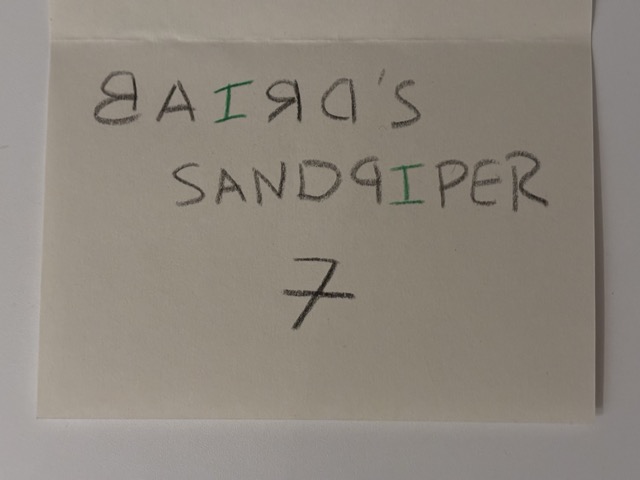 BAIRD'S
SANDPIPER
7